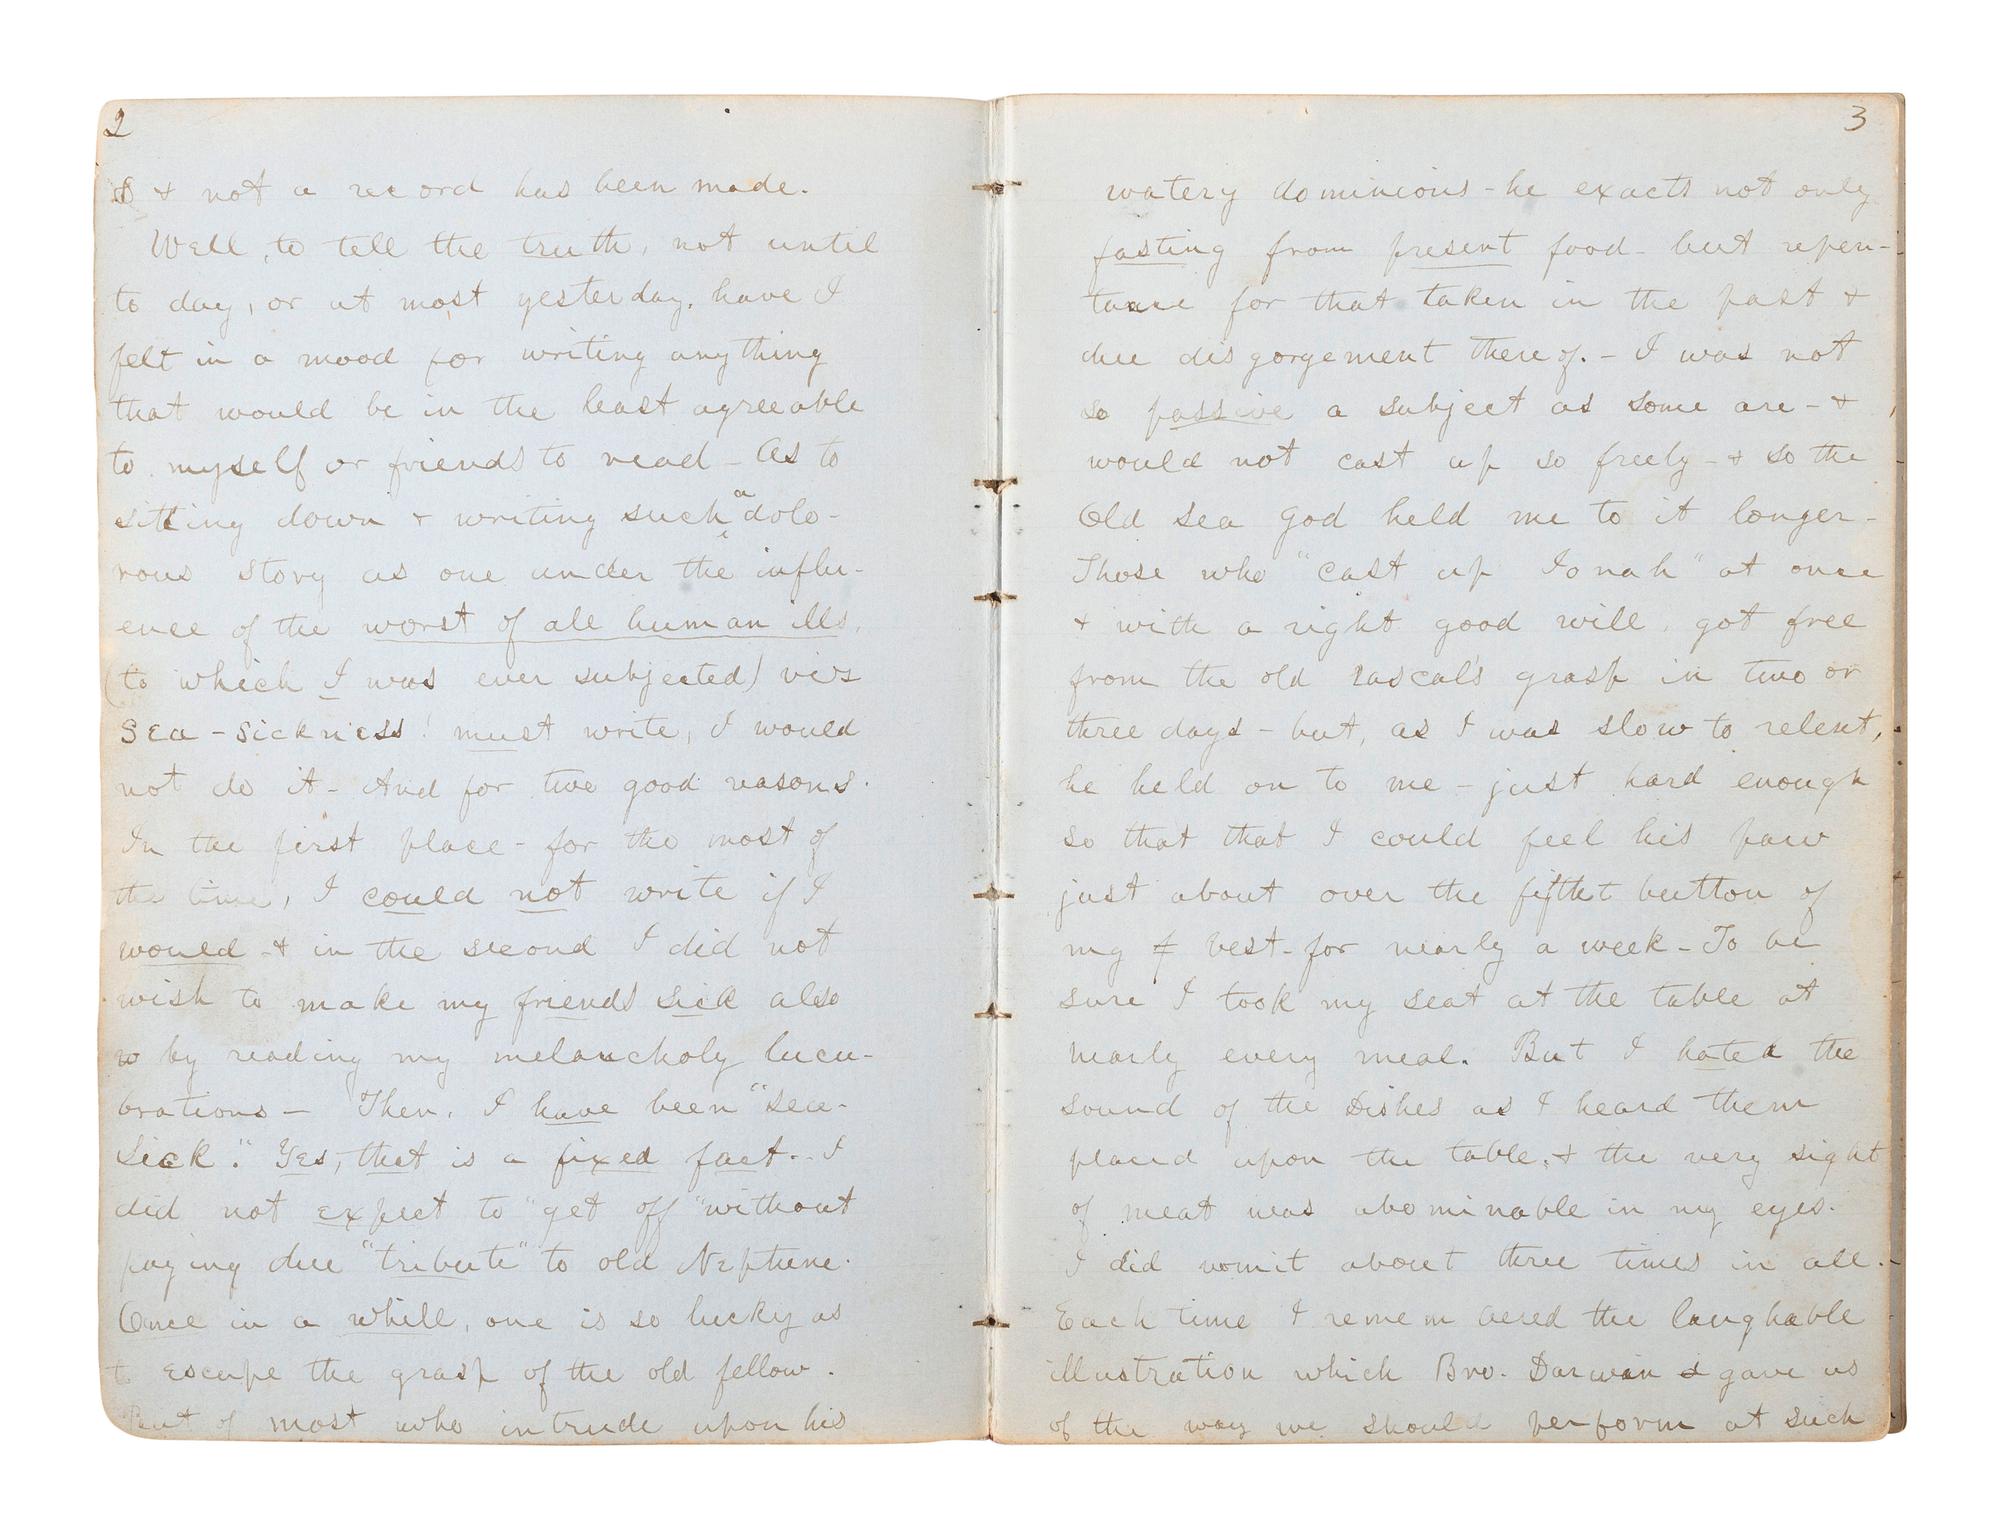 2
& not a record has been made.
Well, to tell the truth, not until
to day, or at most yesterday, have I
felt in a mood for writing anything
that would be in the least agreeable
to myself or friends to read - As to
sitting down & writing such a dolo-
rous story as one under the influ-
ence of the worst of all human ills,
(to which I was ever subjected) viz
Sea-Sickness! must write, I would
not do it - And for two good reasons.
In the first place - for the most of
the time, I could not write if I
would - & in the second I did not
wish to make my friends sick also
by reading my melancholy lucu-
brations - Then, I have been "sea-
sick." Yes, that is a fixed fact. - I
did not expect to "get off" without
paying due "tribute" to old Neptune.
Once in a while, one is so lucky as
to escape the grasp of the old fellow.
But of most who intrude upon his
3
watery dominions - he exacts not only
fasting from present food - but repen-
tance for that taken in the past &
due disgorgement thereof. - I was not
so passive a subject as some are - &
would not cast up so freely - & so the
Old Sea God held me to it longer -
Those who "cast up Jonah" at once
& with a right good will, got free
from the old rascal's grasp in two or
three days - but, as I was slow to relent,
he held on to me - just hard enough
so that that I could feel his paw
just about over the fifth button of
my vest - for nearly a week - To be
sure I took my seat at the table at
nearly every meal. But I hated the
sound of the Dishes as I heard them
placed upon the table, & the very sight
of meat was abominable in my eyes.
I did vomit about three times in all.
Each time I remembered the laughable
illustration which Bro. Darwin gave us
of the way we should perform at such